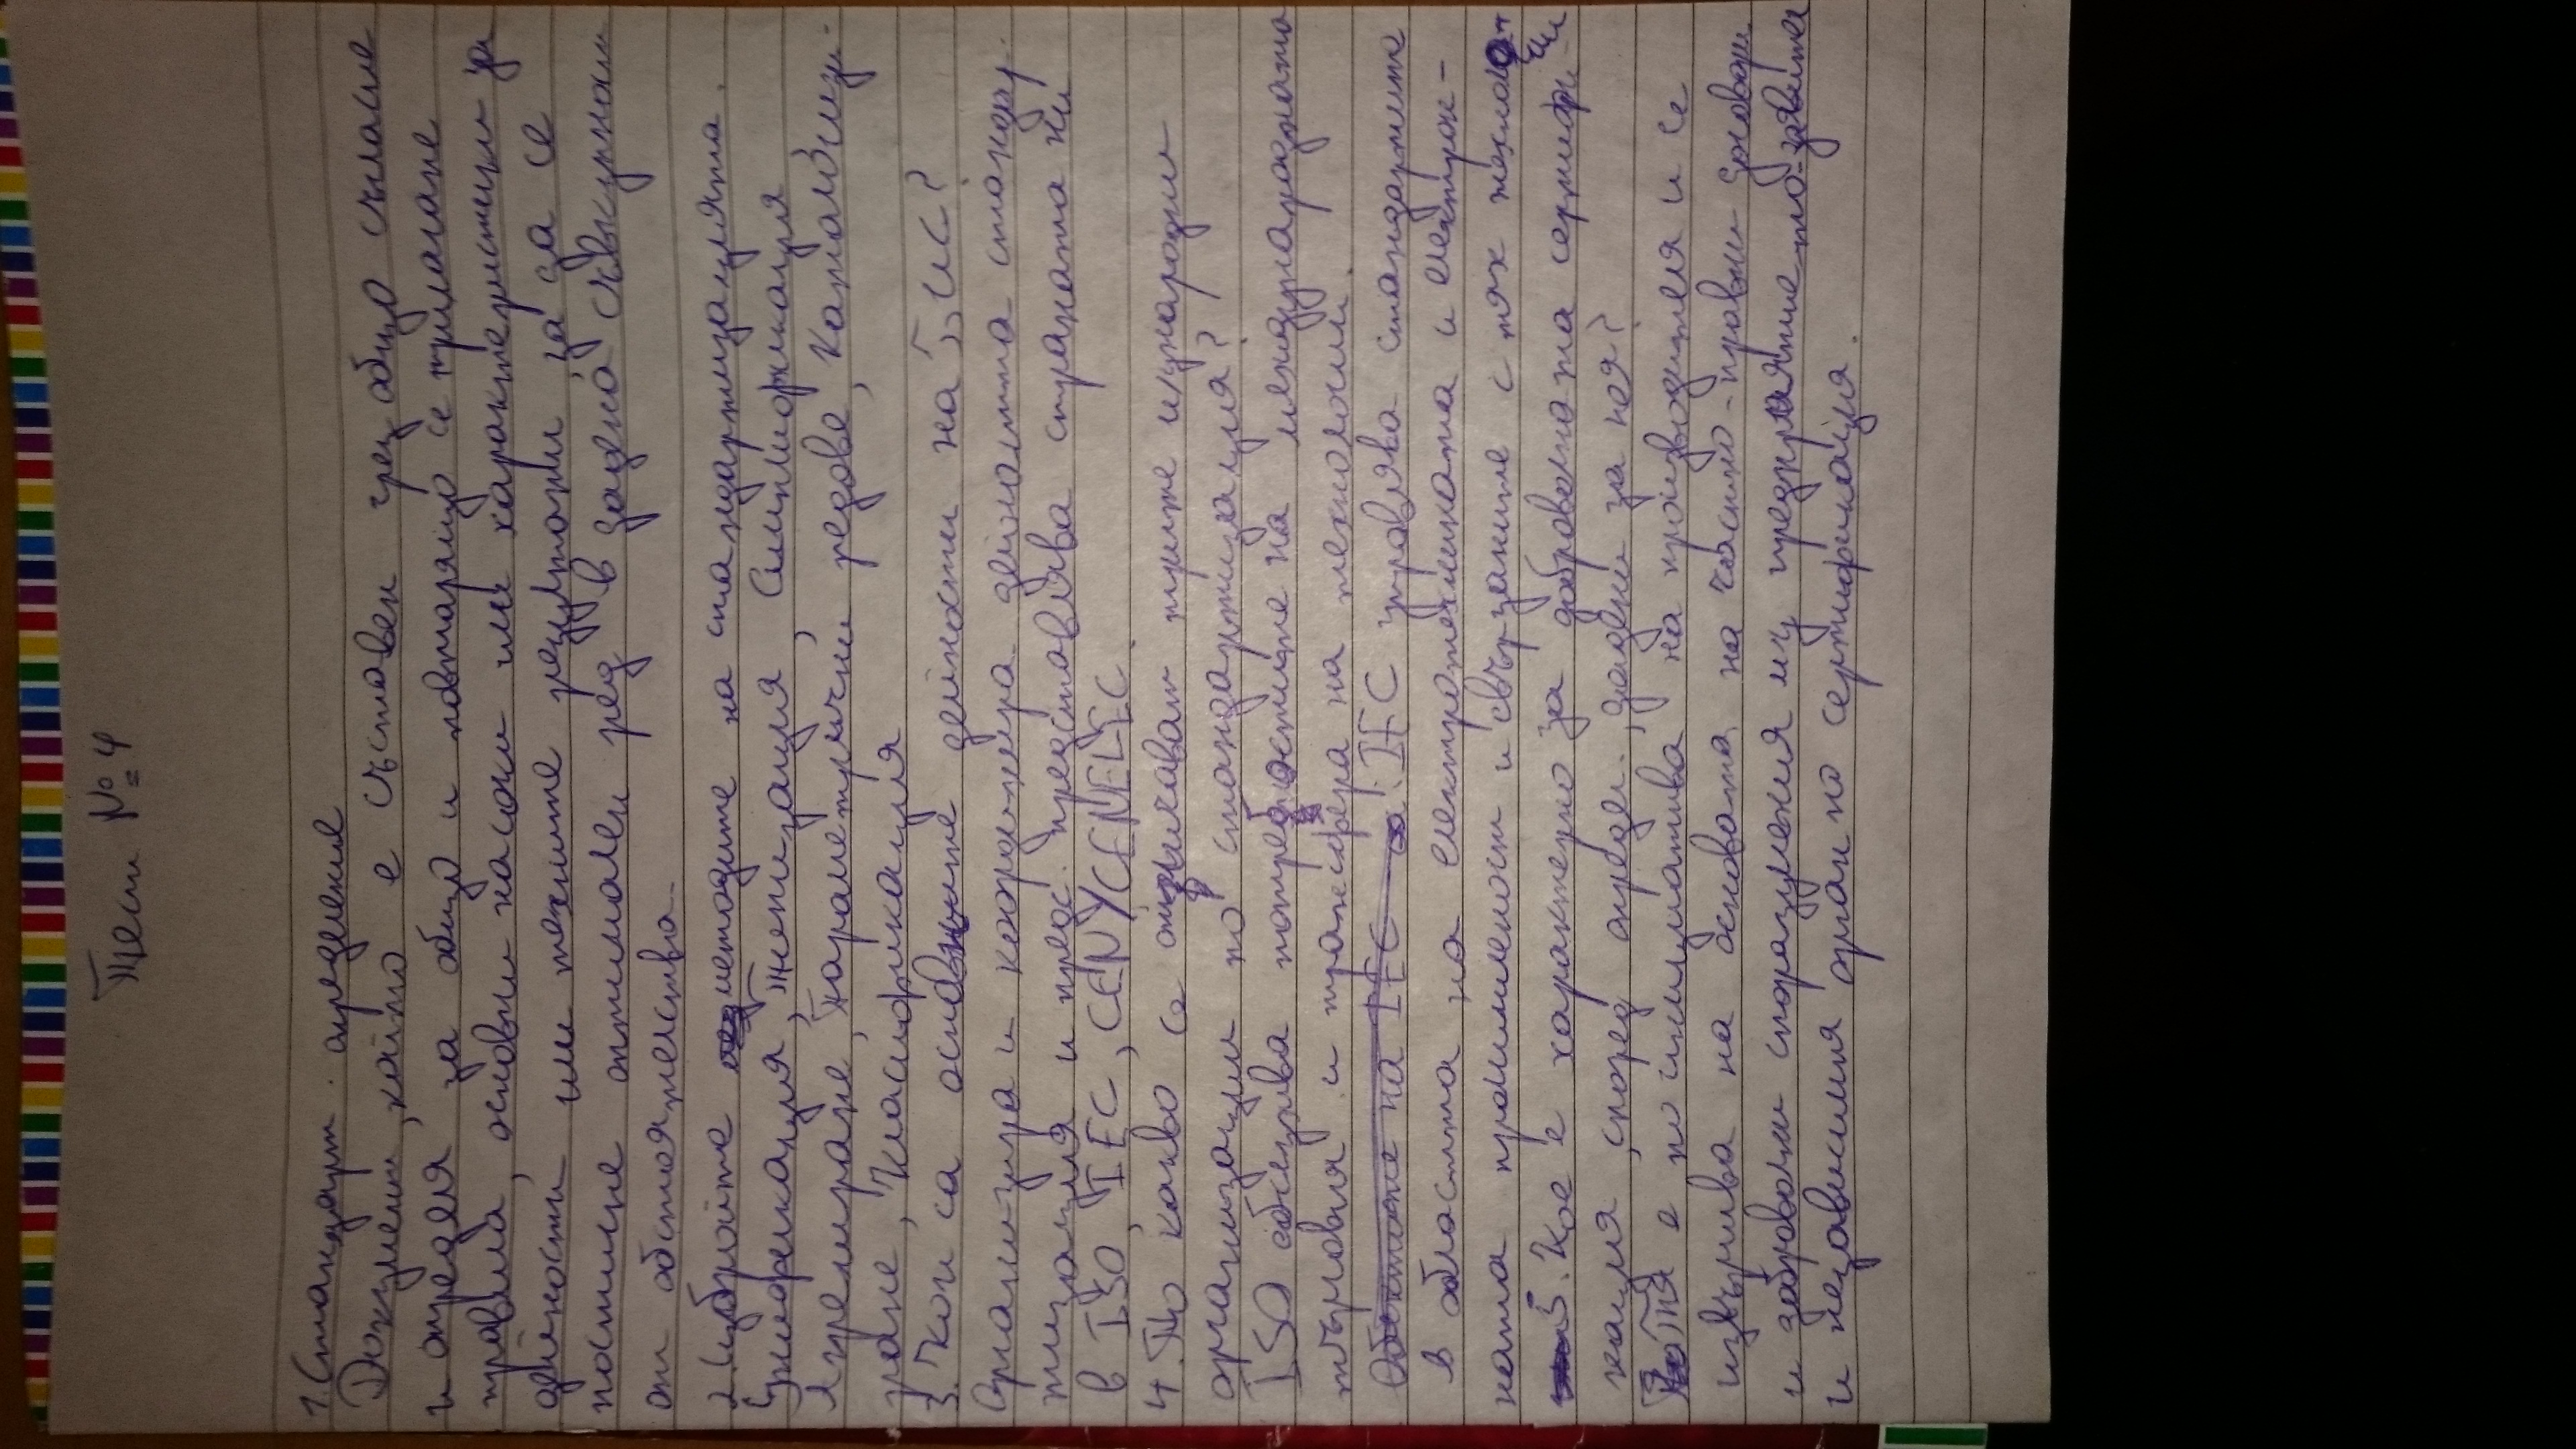 Тест № 4
1. Стандарт - определение
Документ, който е съставен чрез общо съгласие
и определя за общо и повтарящо се прилагане
правила, основни насоки или характеристики за
дейности или техните резултати, за да се
постигне оптимален ред в дадена съвкупност
от обстоятелства.
2. Избройте методите на стандартизацията.
Унификация, Типизация, Симплификация,
Агрегиране, Параметрични редове, Каталогизи-
ране, Класификация
3. Кои са основните дейности на БИС?
Организира и координира дейността стандар-
тизация и предс. представлява страната ни
в ISO, IEC, CEN/CENELEC.
4. По какво се отличават трите м/ународни
организации по стандартизация?
ISO обслужва потребностите на международната
търговия и трансфера на технологии.
Обектите на IEC са: IEC управлява стандартите
в областта на електротехниката и електрон-
ната промишленост и свързаните с тях техноло-
гии
5. Кое е характерно за доброволната сертифи-
кация, според опредл., дадени за нея?
Тя е по инициатива на производителя и се
извършва на основата на частно-правни договори
и доброволни споразумения м/у предприятието-заявител
и независимия орган по сертификация.